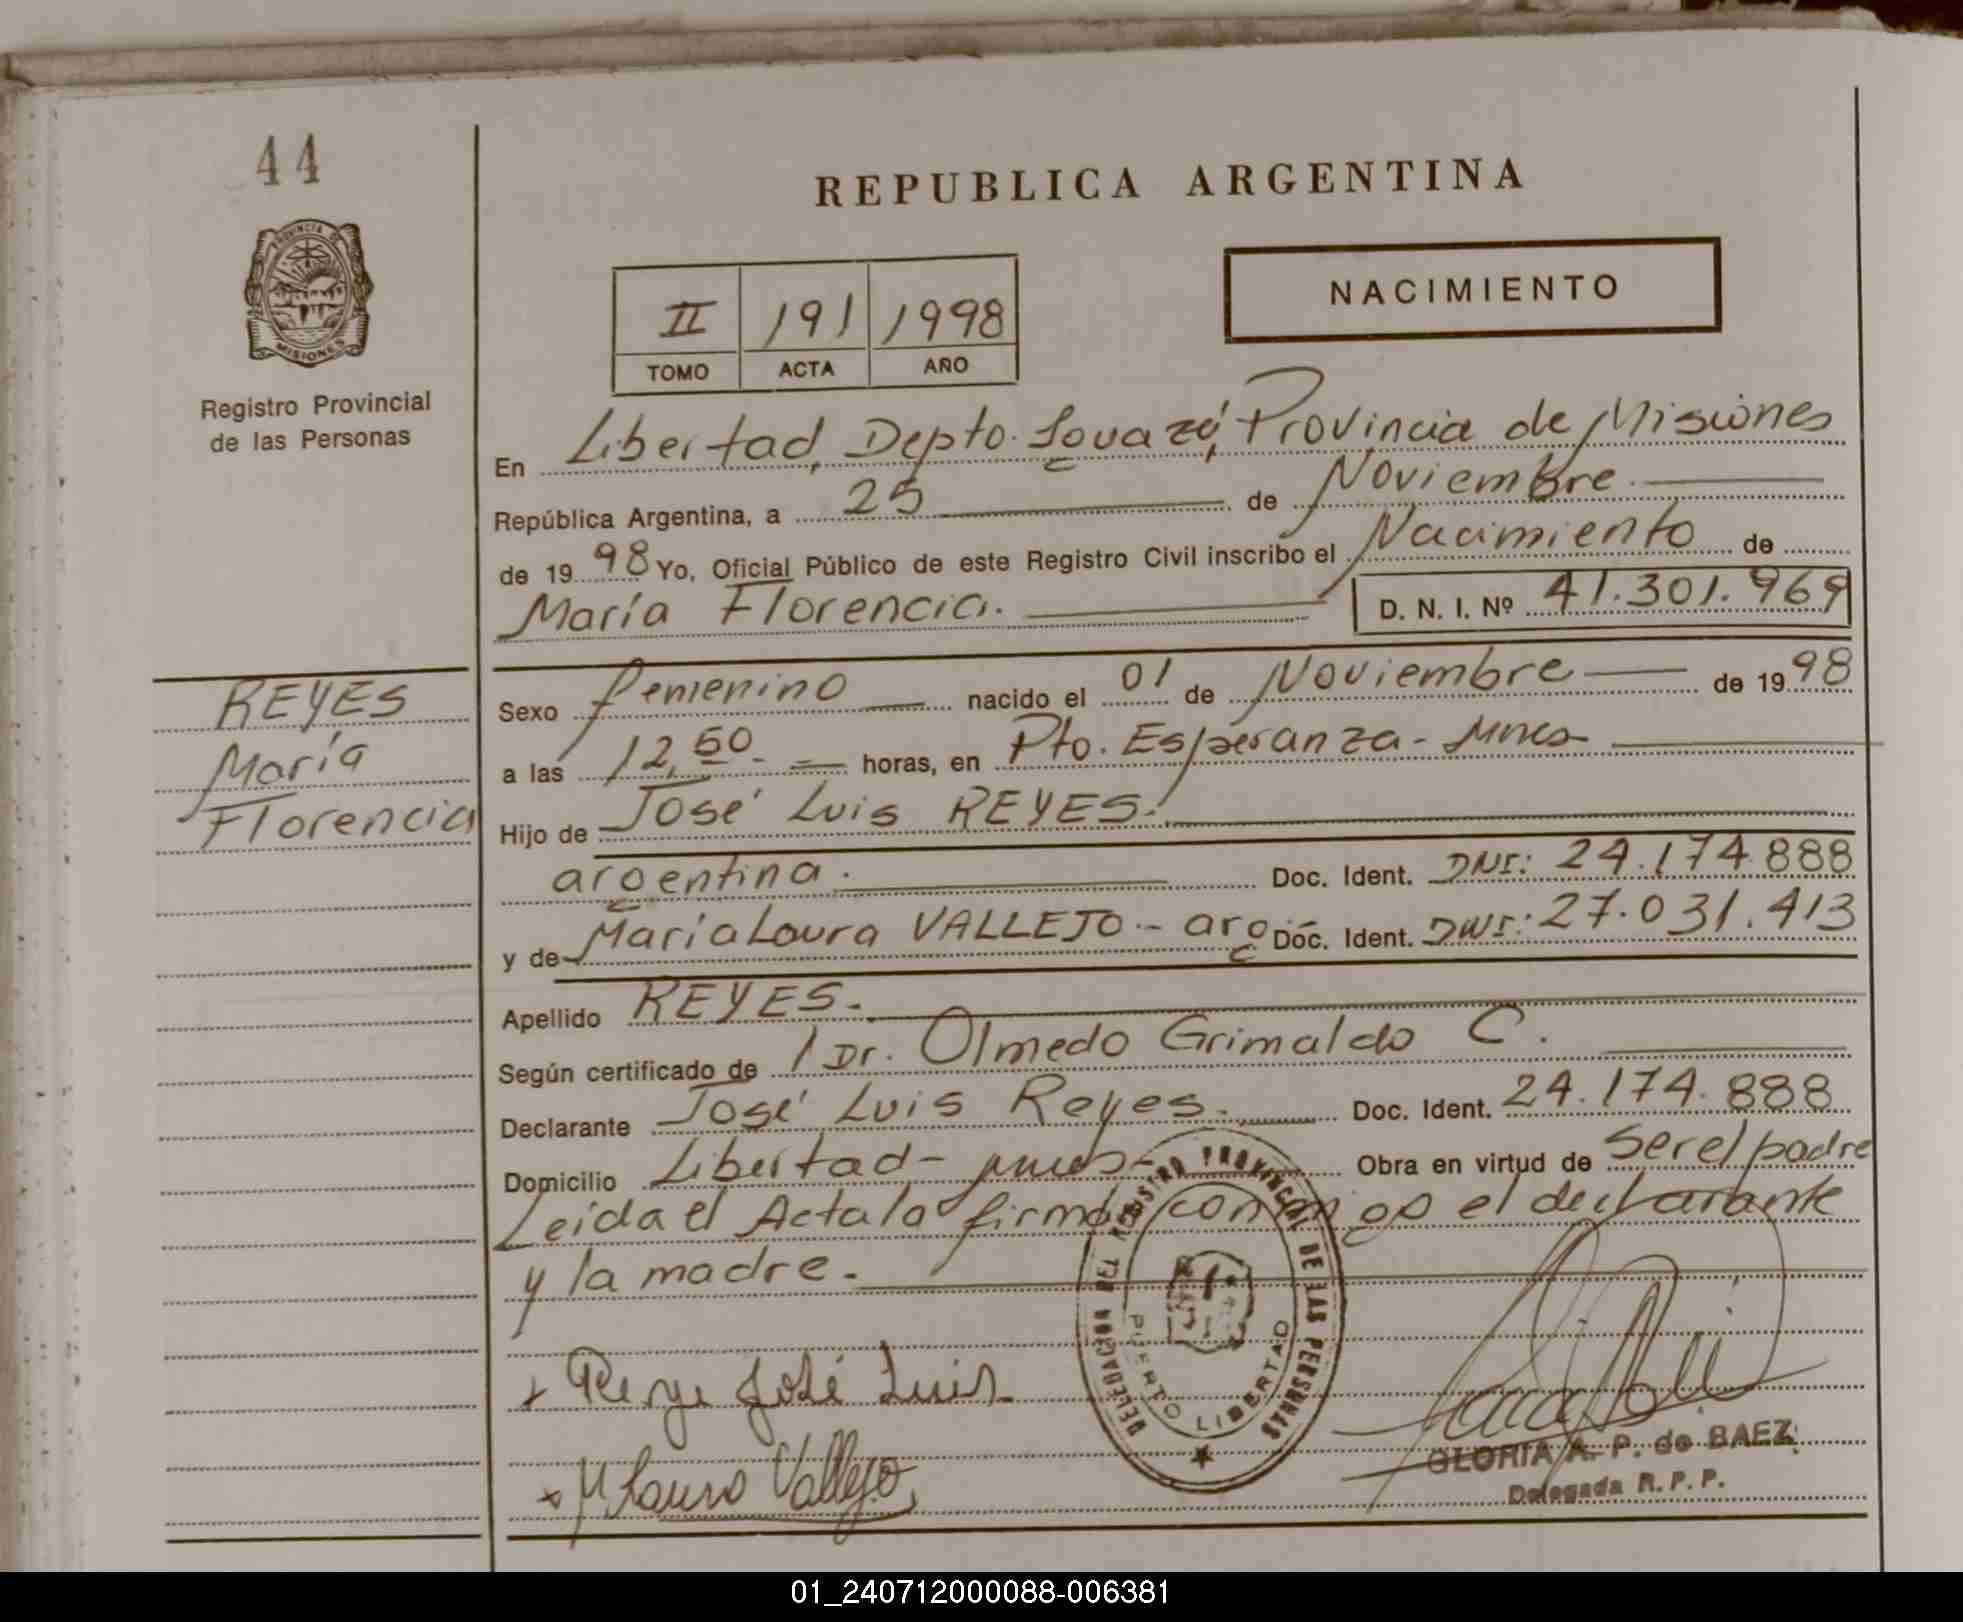 44
PROVINCIA DE
MISIONES
Registro Provincial
de las Personas
REPUBLICA ARGENTINA
NACIMIENTO
II 191 1998
TOMO ACTA AÑO
En Libertad, Depto. Iguazú, Provincia de Misiones
República Argentina, a 25 de Noviembre
de 1998 Yo, Oficial Público de este Registro Civil inscribo el Nacimiento de
María Florencia. D. N. I. Nº 41.301.969
REYES
María
Florencia
Sexo femenino nacido el 01 de Noviembre de 1998
a las 12,50 horas, en Pto. Esperanza - Mnes
Hijo de José Luis REYES.
argentina. Doc. Ident. DNI: 24.174.888
y de María Laura VALLEJO - arg. Doc. Ident. DNI: 27.031.413
Apellido REYES.
Según certificado de Dr. Olmedo Grimaldo C.
Declarante José Luis Reyes. Doc. Ident. 24.174.888
Domicilio Libertad - Mnes - Obra en virtud de ser el padre
Leida el Acta la firmó conmigo el declarante
y la madre.
DELEGACION DEL REGISTRO PROVINCIAL DE LAS PERSONAS
PUERTO LIBERTAD
José Luis
M Laura Vallejo
GLORIA A. P. de BAEZ
Delegada R. P. P.
01_240712000088-006381